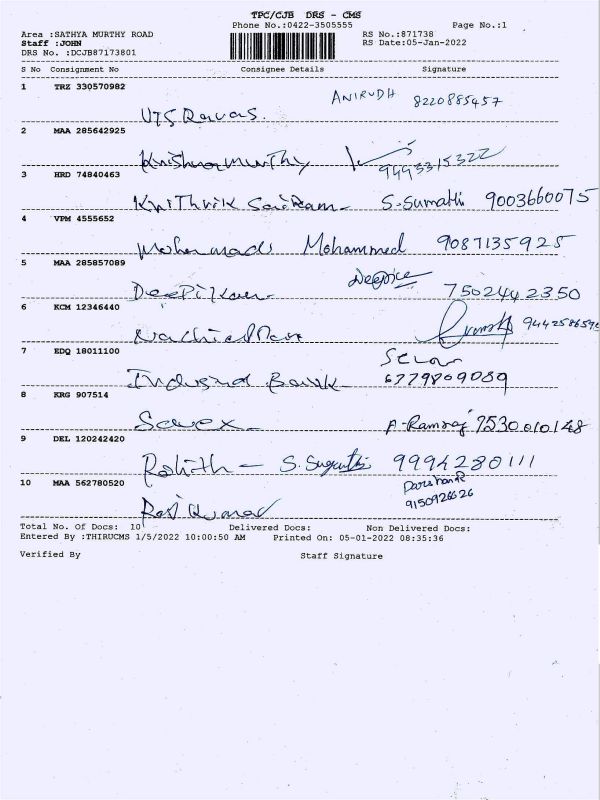 TPC/CJB DRS - CMS
Phone No.:0422-3505555 Page No.:1
Area :SATHYA MURTHY ROAD RS No.:871738
Staff :JOHN RS Date:05-Jan-2022
DRS No. :DCJB87173801
S No Consignment No Consignee Details Signature
1 TRZ 330570982 ANIRUDH 8220885457
UTS
2 MAA 285642925
Krishnamurthy 9443315322
3 HRD 74840463
SaiRam S-Sumathi 9003660075
4 VPM 4555652
Mohammed 9087135925
5 MAA 285857089
7502442350
6 KCM 12346440
7 EDQ 18011100
Indusind Bank 6779809089
8 KRG 907514
Savex A-Ramraj 7530010148
9 DEL 120242420
Rohith S. Suganthi 9994280111
10 MAA 562780520
Ravi Kumar
Total No. Of Docs: 10 Delivered Docs: Non Delivered Docs:
Entered By :THIRUCMS 1/5/2022 10:00:50 AM Printed On: 05-01-2022 08:35:36
Verified By Staff Signature